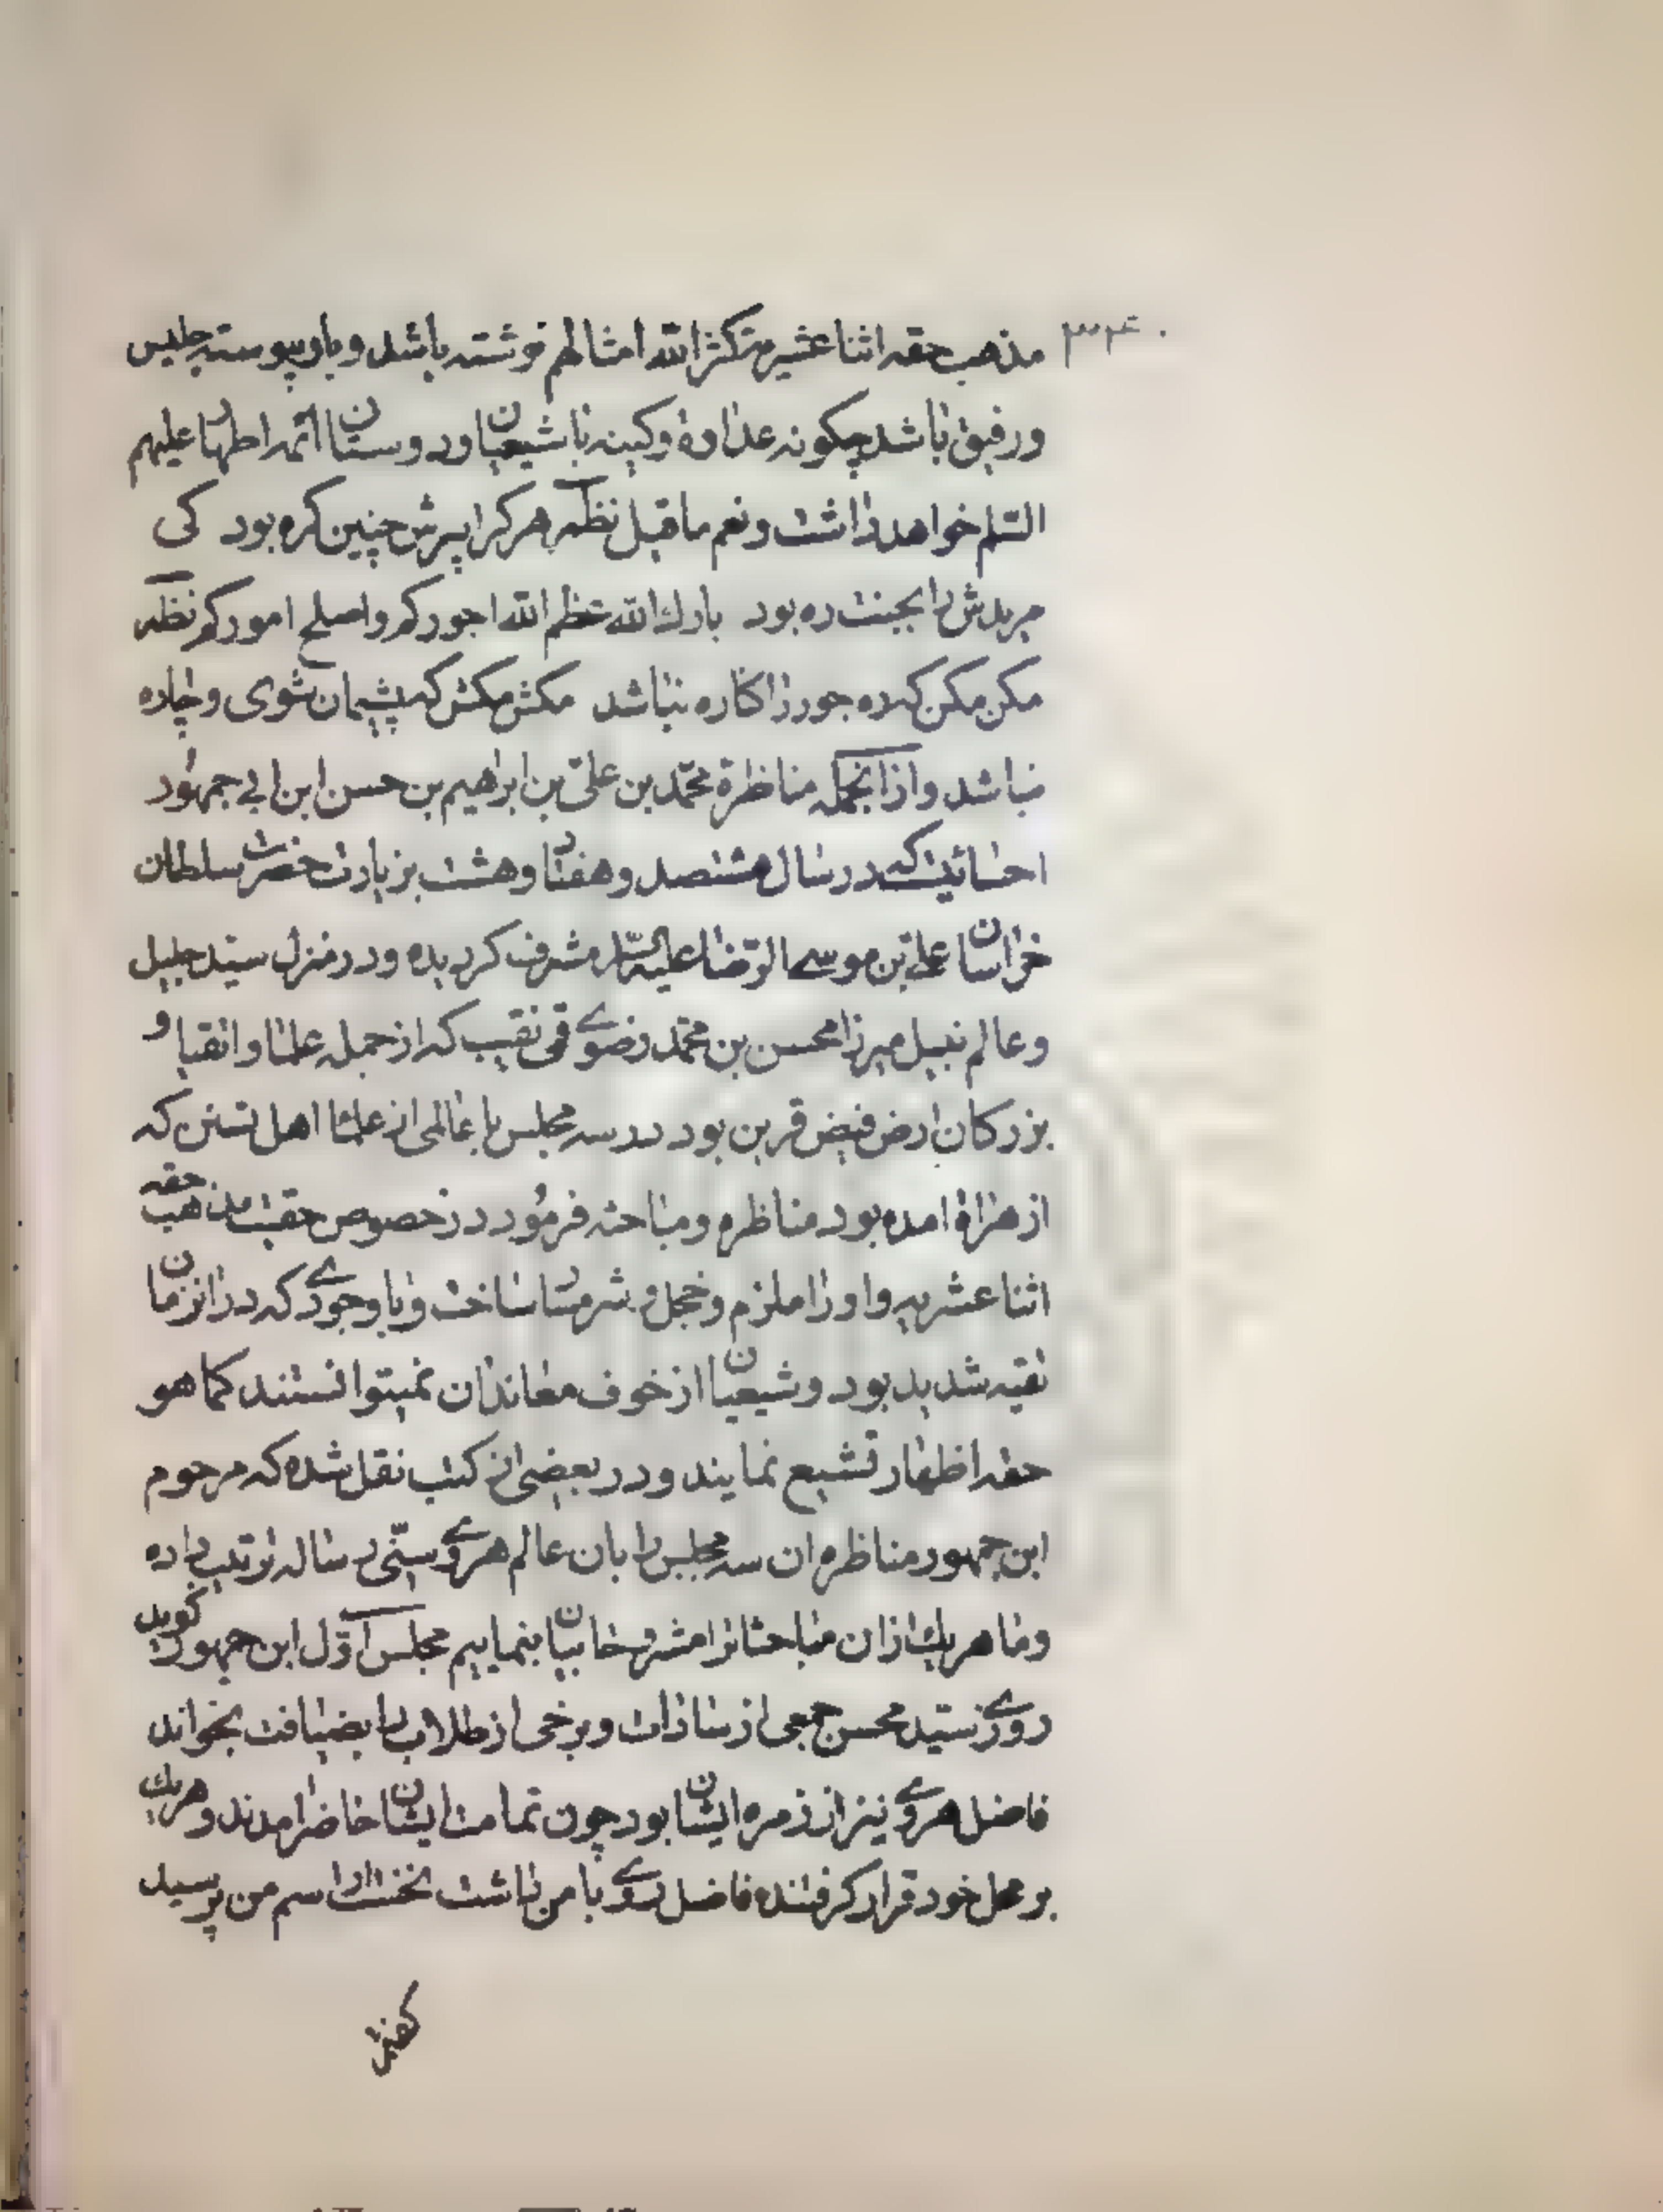 ۳۴۰
مذهب حقه اثنا عشریه کثر الله امثالهم نوشته باشد و باو پیوسته جلیس
و رفیق باشد چکونه عداوة و کینه با شیعیان و دوستان ائمه اطهار علیهم
السّلم خواهد داشت و نعم ما قیل نظم هر کرا پیرش چنین کره بود کی
مریدش را بجنت ره بود بارك الله عظم الله اجورکم و اصلح امورکم نظم
مکن مکن که ره جور را کناره نباشد مکش مکش که پشیمان شوی و چاره
نباشد و از انجمله مناظرة محمّد بن علیّ بن ابراهیم بن حسن ابن ابی جمهور
احسائیت که در سال هشتصد و هفتاد و هشت بزیارت حضرت سلطان
خراسان علی بن موسی الرّضا علیه السّلام مشرف کردیده و در منزل سیّد جلیل
و عالم نبیل میرزا محسن بن محمّد رضوی قمی نقیب که از جمله علما و اتقیا و
بزرکان ارض فیض قرین بود در سه مجلس با عالمی از علما اهل تسنن که
از هراة امده بود مناظره و مباحثه فرمود در خصوص حقیت مذهب حقه
اثنا عشریه و او را ملزم و خجل و شرمسار ساخت و با وجودی که در انزمان
تقیه شدید بود و شیعیان از خوف معاندان نمیتوانستند کما هو
حقه اظهار تشیع نمایند و در بعضی از کتب نقل شده که مرحوم
ابن جمهور مناظره ان سه مجلس را بان عالم هروی سنّی رساله ترتیب داده
و ما هریك از ان مباحثاترا مشروحا بیان بنماییم مجلس اوّل ابن جمهور کوید
روزی سیّد محسن جمعی از سادات و برخی از طلاب را بضیافت بخواند
فاضل هروی نیز از زمره ایشان بود چون تمامت ایشان حاضر امدند و هریك
بر محل خود قرار کرفتند فاضل روی با من داشت نخست از اسم من پرسید
کفتم